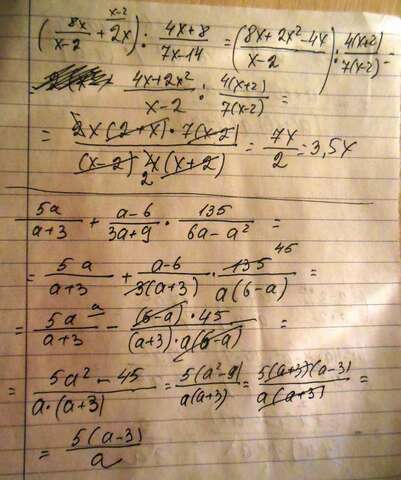 (8x/(x-2) + 2x^(x-2)) : (4x+8)/(7x-14) = ((8x+2x²-4x)/(x-2)) : 4(x+2)/7(x-2) =
(4x+2x²)/(x-2) : 4(x+2)/7(x-2) =
= 2x(2+x)·7(x-2)/(x-2)4(x+2) 2 = 7x/2 = 3,5x
5a/(a+3) + (a-6)/(3a+9) · 135/(6a-a²) =
= 5a/(a+3) + (a-6)/3(a+3) · 135 45/a(6-a) =
= 5a a/(a+3) - (6-a)·45/(a+3)·a(6-a) =
= (5a²-45)/a·(a+3) = 5(a²-9)/a(a+3) = 5(a+3)(a-3)/a(a+3) =
= 5(a-3)/a